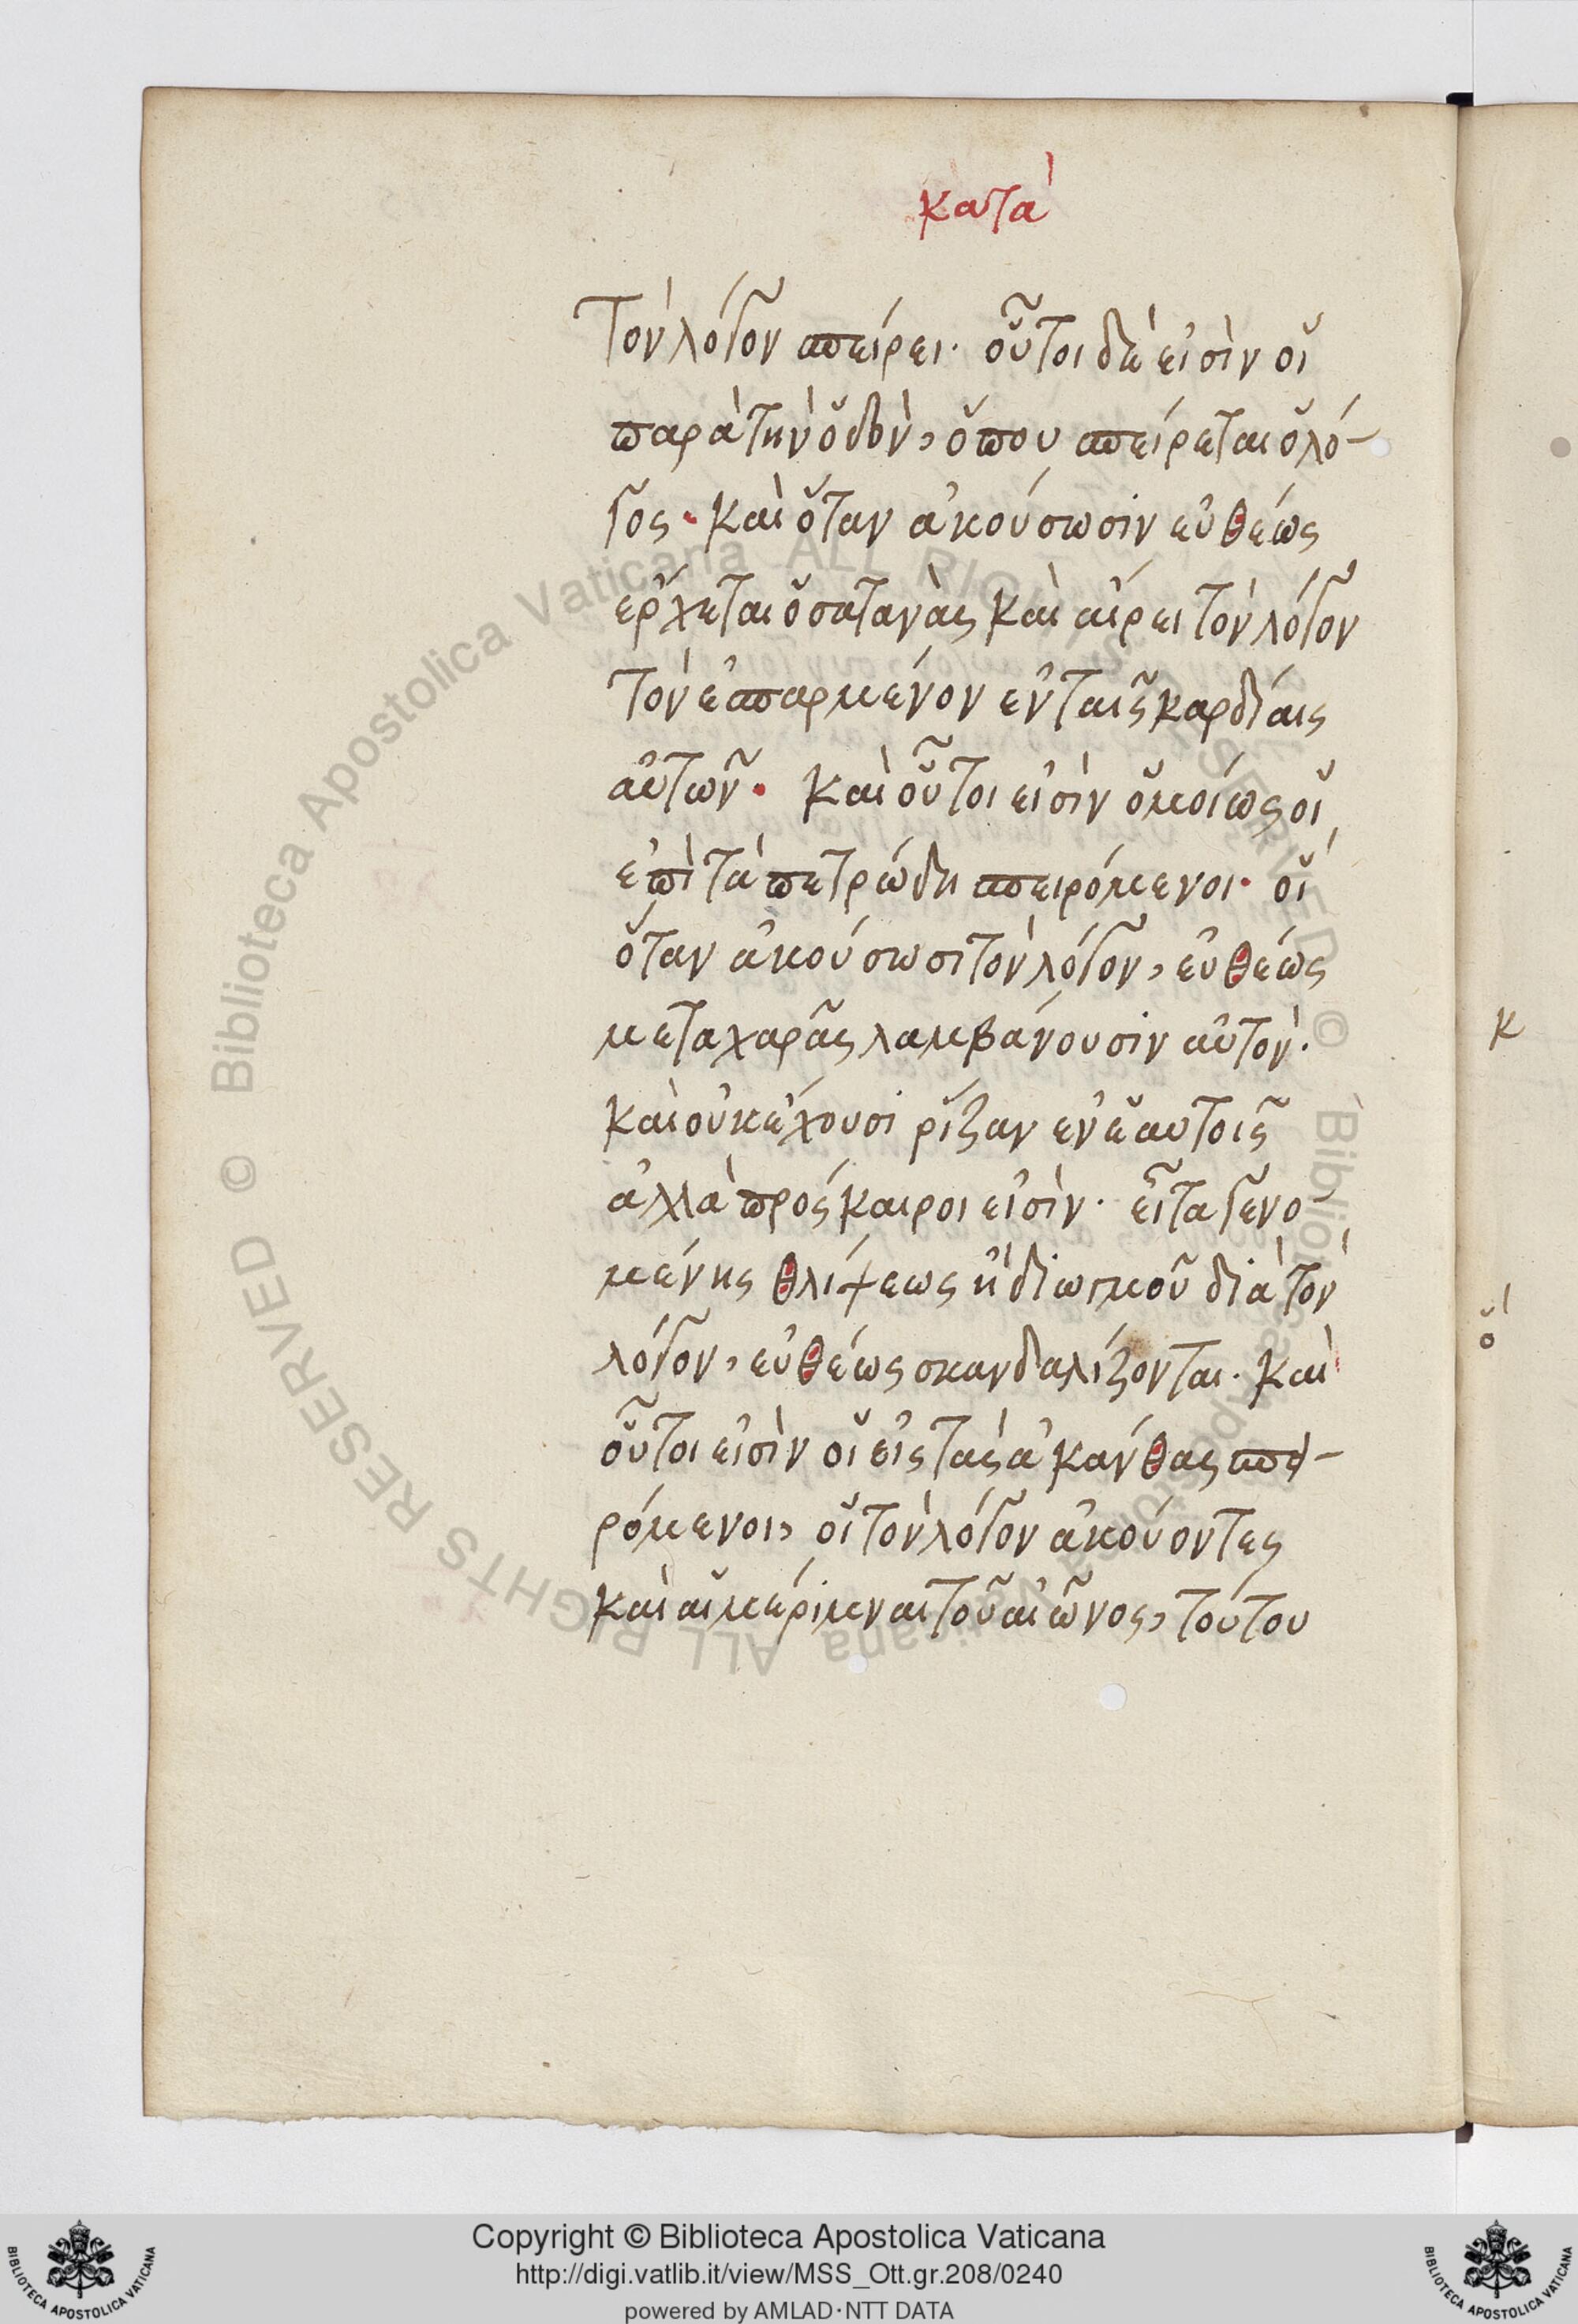 κατὰ
Τὸν λόγον σπείρει· οὗτοι δέ εἰσὶν οἱ
παρὰ τὴν ὁδὸν, ὅπου σπείρεται ὁ λό-
γος· καὶ ὅταν ἀκούσωσιν εὐθέως
ἔρχεται ὁ σατανὰς καὶ αἴρει τὸν λόγον
τὸν ἐσπαρμένον ἐν ταῖς καρδίαις
αὐτῶν· καὶ οὗτοι εἰσὶν ὁμοίως οἱ
ἐπὶ τὰ πετρώδη σπειρόμενοι· οἳ
ὅταν ἀκούσωσι τὸν λόγον, εὐθέως
μετα χαρᾶς λαμβάνουσιν αὐτὸν·
καὶ οὐκ ἔχουσι ῥίζαν ἐν ἑαυτοῖς
ἀλλὰ πρόσκαιροι εἰσὶν· εἶτα γενο
μένης θλίψεως ἢ διωγμοῦ διὰ τὸν
λόγον, εὐθέως σκανδαλίζονται· καὶ
οὗτοι εἰσὶν οἱ εἰς τὰς ἀκάνθας σπει-
ρόμενοι, οἱ τὸν λόγον ἀκούοντες
καὶ αἱ μέριμναι τοῦ αἰῶνος, τούτου
κ
ὃ
Copyright © Biblioteca Apostolica Vaticana
http://digi.vatlib.it/view/MSS_Ott.gr.208/0240
powered by AMLAD·NTT DATA